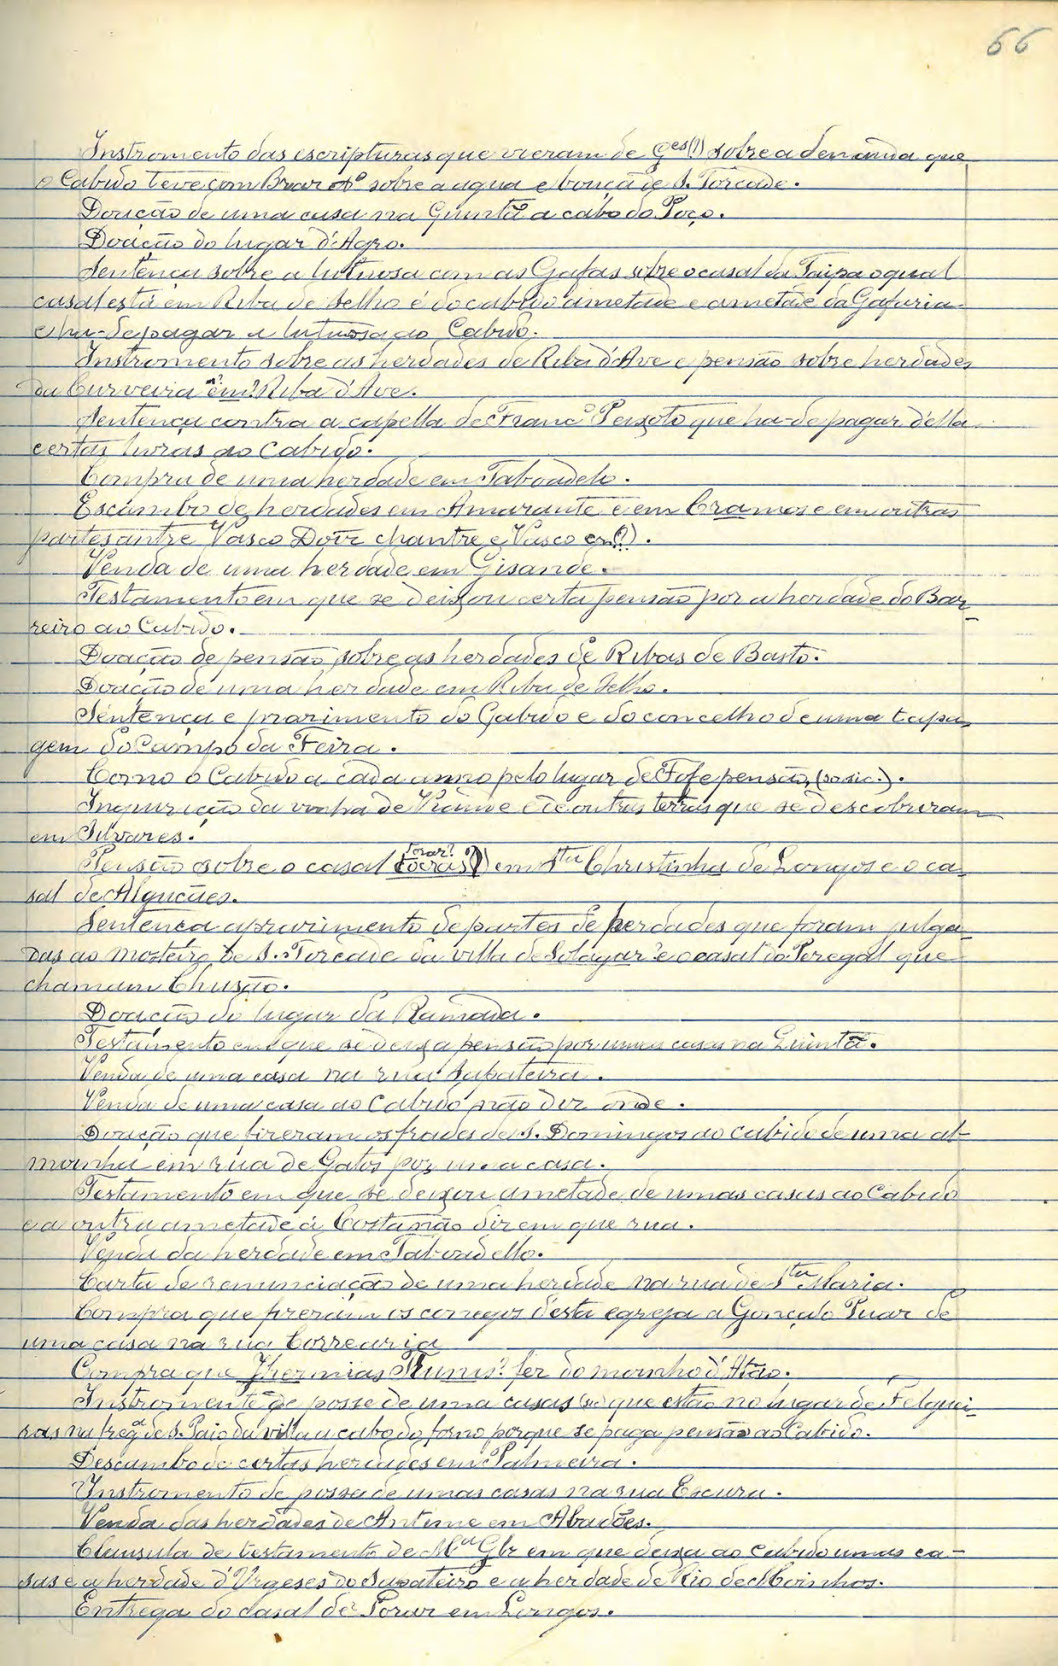 66
Instromento das escripturas que vieram de G.es (?) sobre a demanda que
o Cabido teve com sobre a agua e bouça de S. Torcade.
Doação de uma casa na Quintã a cabo do Poço.
Doação do lugar d'Agro.
Sentença sobre a lutuosa com as Gafas sobre o casal da Taipa o qual
casal está em Riba de Selho é do cabido ametade e ametade da Gafaria
e ha-de pagar a lutuosa ao Cabido.
Instromento sobre as herdades de Riba d'Ave e pensão sobre herdades
da Curveira "em? Riba d'Ave.
Sentença contra a capella de Franc.o Peixoto que ha-de pagar d'ella
certas livras ao Cabido.
Compra de uma herdade em Taboadelo.
Escambo de herdades em Amarante e em Cramos e em outras
partes antre Vasco Doiz chantre e Vasco em(?).
Venda de uma herdade em Gisande.
Testamento em que se deixou certa pensão por a herdade do Bar-
reiro ao Cabido.
Doação de pensão sobre as herdades de Ribas de Basto.
Doação de uma herdade em Riba de Selho.
Sentença e prazimento do Cabido e do concelho de uma tapa-
gem do Campo da Feira.
Como o Cabido a cada anno pelo lugar de Fofe pensão, (so sic.).
Inquirição da vinha de e de outras terras que se descobriram
em Silvares.
Pensão sobre o casal (?) em S.ta Christinha de Longos e o ca-
sal de Alguções.
Sentença aprazimento de partes de herdades que foram julga-
das ao mosteiro de S. Torcade da villa de e o casal do Peregal que
chamam Chusão.
Doação do lugar da Ramada.
Testamento em que se deixa pensão por umas casas na Quintã.
Venda de uma casa na rua Sapateira.
Venda de uma casa ao Cabido não diz onde.
Doação que fizeram os frades de S. Domingos ao cabido de uma al-
moinha em rua de Gatos por uma casa.
Testamento em que se deixou ametade de umas casas ao Cabido
e a outra ametade á Costa não diz em que rua.
Venda da herdade em Taboadello.
Carta de renunciação de uma herdade na rua de S.ta Maria.
Compra que fizeram os conegos d'esta egreja a Gonçalo Puar de
uma casa na rua Correaria
Compra que fez do moinho d'Atão.
Instromento de posse de uma casas (sic) que estão no lugar de Felguei-
ras na freg.a de S. Paio da villa a cabo do forno porque se paga pensão ao Cabido.
Descambo de certas herdades em Palmeira.
Instromento de posse de umas casas na rua Escura.
Venda das herdades de Antime em Abações.
Clausula de testamento de M.a Glz em que deixa ao cabido umas ca-
sas e a herdade d'Urgeses do Sapateiro e a herdade de Rio de Moinhos.
Entrega do casal de em Longos.